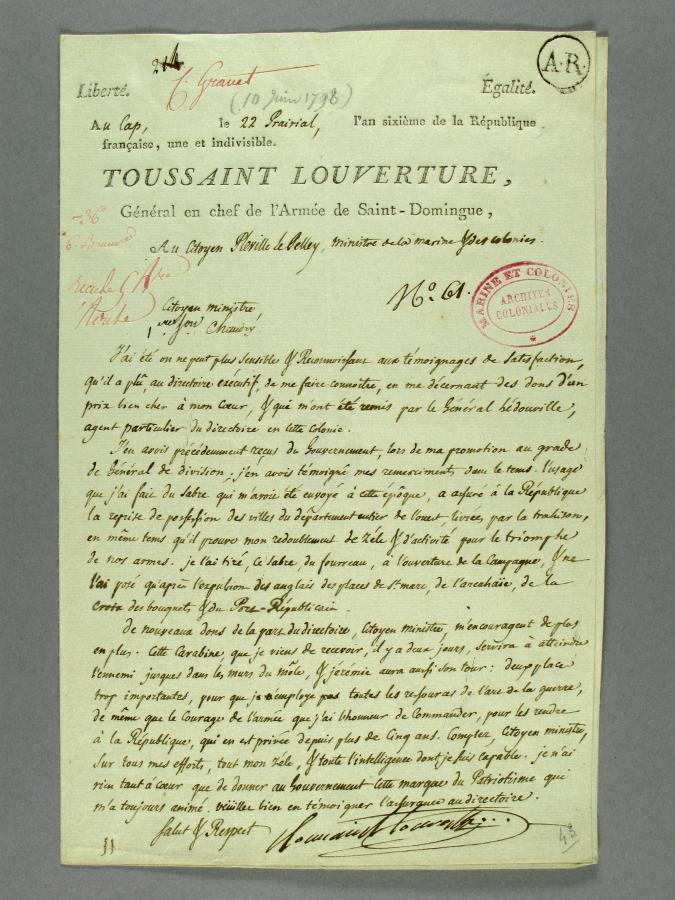 214
A.R
C Gravet
(10 Juin 1798)
Liberté. Égalité.
Au Cap, le 22 Prairial, l'an sixième de la République
française, une et indivisible.
TOUSSAINT LOUVERTURE,
Général en chef de l'Armée de Saint-Domingue,
Au Citoyen Pléville le Pelley, ministre de la marine & des colonies.
No. 61.
MARINE ET COLONIES
ARCHIVES
COLONIALES
Citoyen ministre,
J'ai été on ne peut plus sensible & Reconnoissant aux témoignages de satisfaction,
qu'il a plû, au directoire exécutif, de me faire connoître, en me décernant des dons d'un
prix bien cher à mon Cœur, & qui m'ont été remis par le Général hédouville,
agent particulier du directoire en cette Colonie.
J'en avois précédemment reçus du Gouvernement, lors de ma promotion au grade
de Général de division ; j'en avois témoigné mes remerciments dans le tems. l'usage
que j'ai fait du sabre qui m'avoit été envoyé à cette époque, a assuré à la République
la reprise de possession des villes du département entier de l'ouest, livrées par la trahison,
en même tems qu'il prouve mon redoublement de zèle & d'activité pour le triomphe
de nos armes. je l'ai tiré, ce sabre, du fourreau, à l'ouverture de la Campagne, & ne
l'ai posé qu'après l'expulsion des anglais des places de St. marc, de l'arcahaïe, de la
Croix des bouquets & du Port-Républicain.
De nouveaux dons de la part du directoire, Citoyen ministre, m'encouragent de plus
en plus. Cette Carabine que je viens de recevoir, il y a deux jours, servira à atteindre
l'ennemi jusques dans les murs du môle, & jérémie aura aussi son tour : deux place
trop importantes, pour que je n'employe pas toutes les resources de l'art de la guerre,
de même que le Courage de l'armée que j'ai l'honneur de Commander, pour les rendre
à la République, qui en est privée depuis plus de Cinq ans. Comptez, Citoyen ministre,
sur tous mes efforts, tout mon zèle, & toute l'intelligence dont je suis capable. je n'ai
rien tant à cœur que de donner au Gouvernement cette marque du Patriotisme qui
m'a toujours animé. veuillez bien en témoigner l'assurance au directoire.
Salut & Respect
Toussaint Louverture